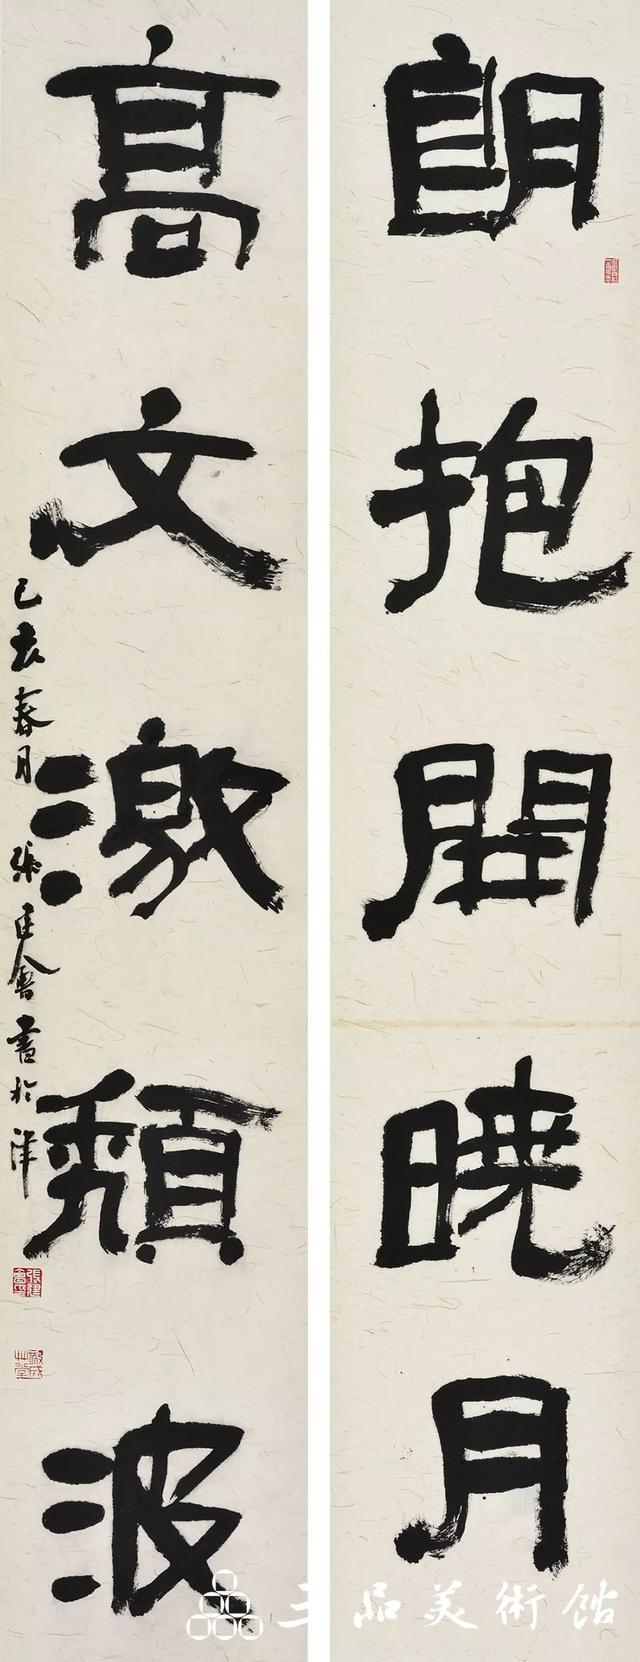 朗抱開曉月
高文激頹波
己亥春月 張建會書於津
三品美術館